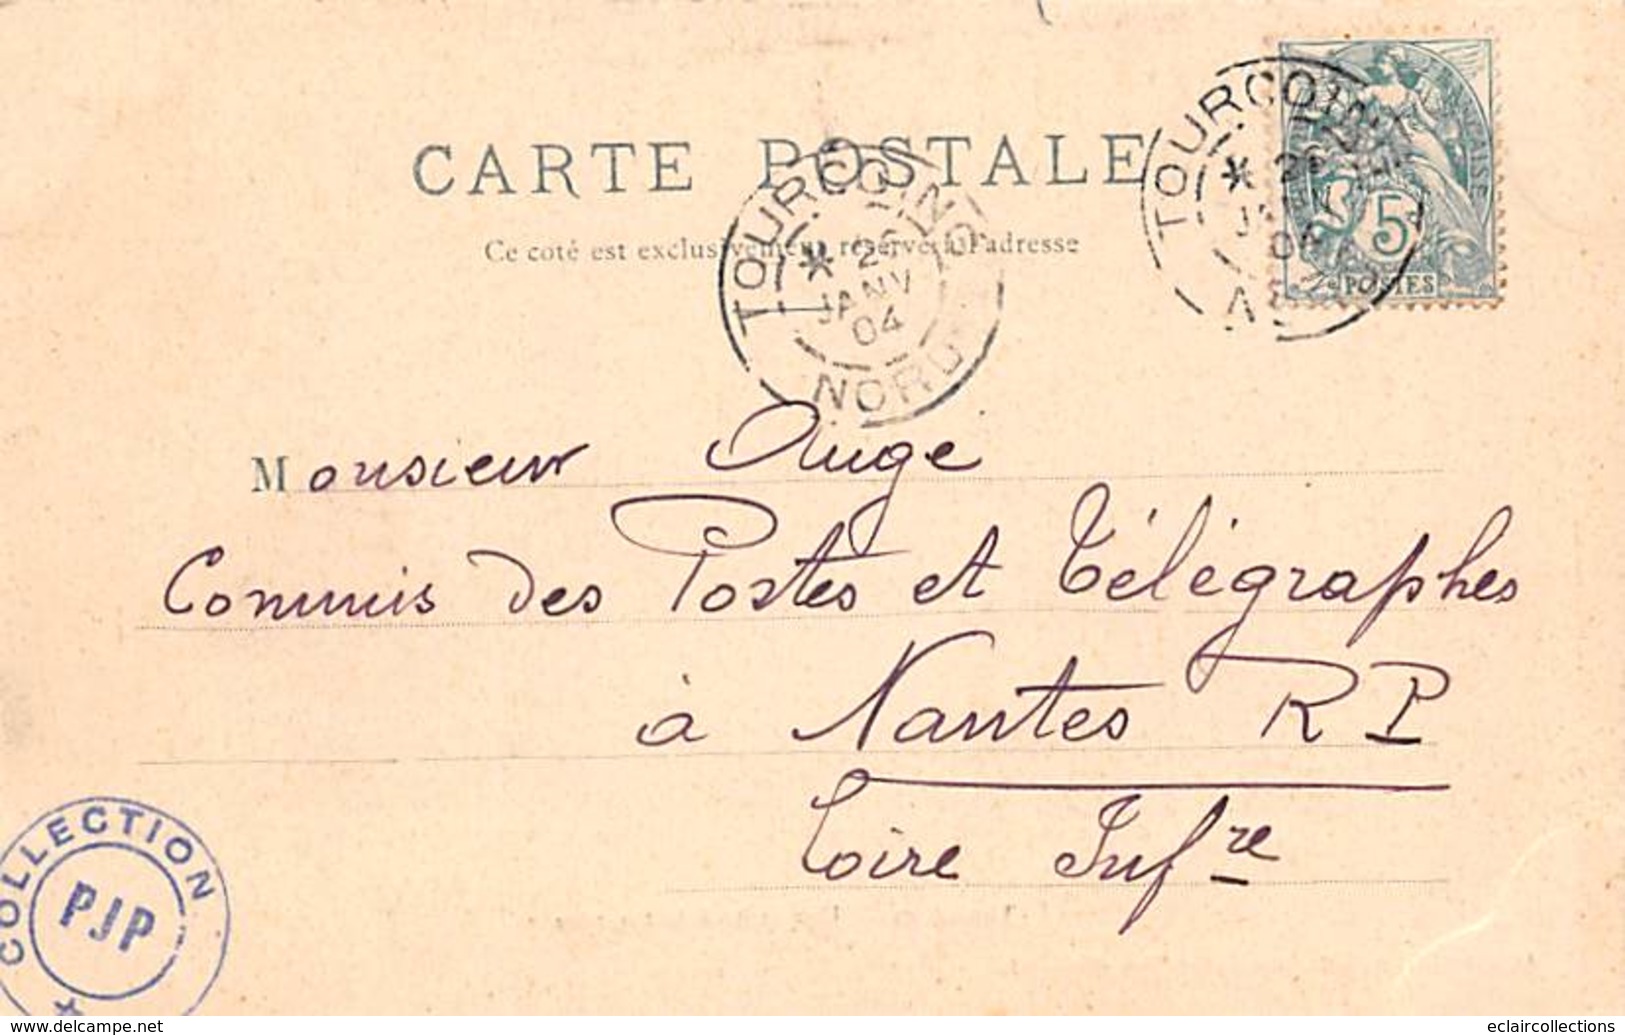 CARTE POSTALE
Ce coté est exclusivement réservé à l'adresse
TOURCOING
26
JANV
04
NORD
TOURCOING
JANV
5
POSTES
Monsieur Auge
Commis des Postes et Télégraphes
à Nantes R P
Loire Infre
COLLECTION
PJP
www.delcampe.net
eclaircollections